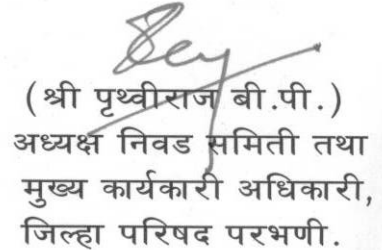 (श्री पृथ्वीराज बी.पी.)
अध्यक्ष निवड समिती तथा
मुख्य कार्यकारी अधिकारी,
जिल्हा परिषद परभणी.